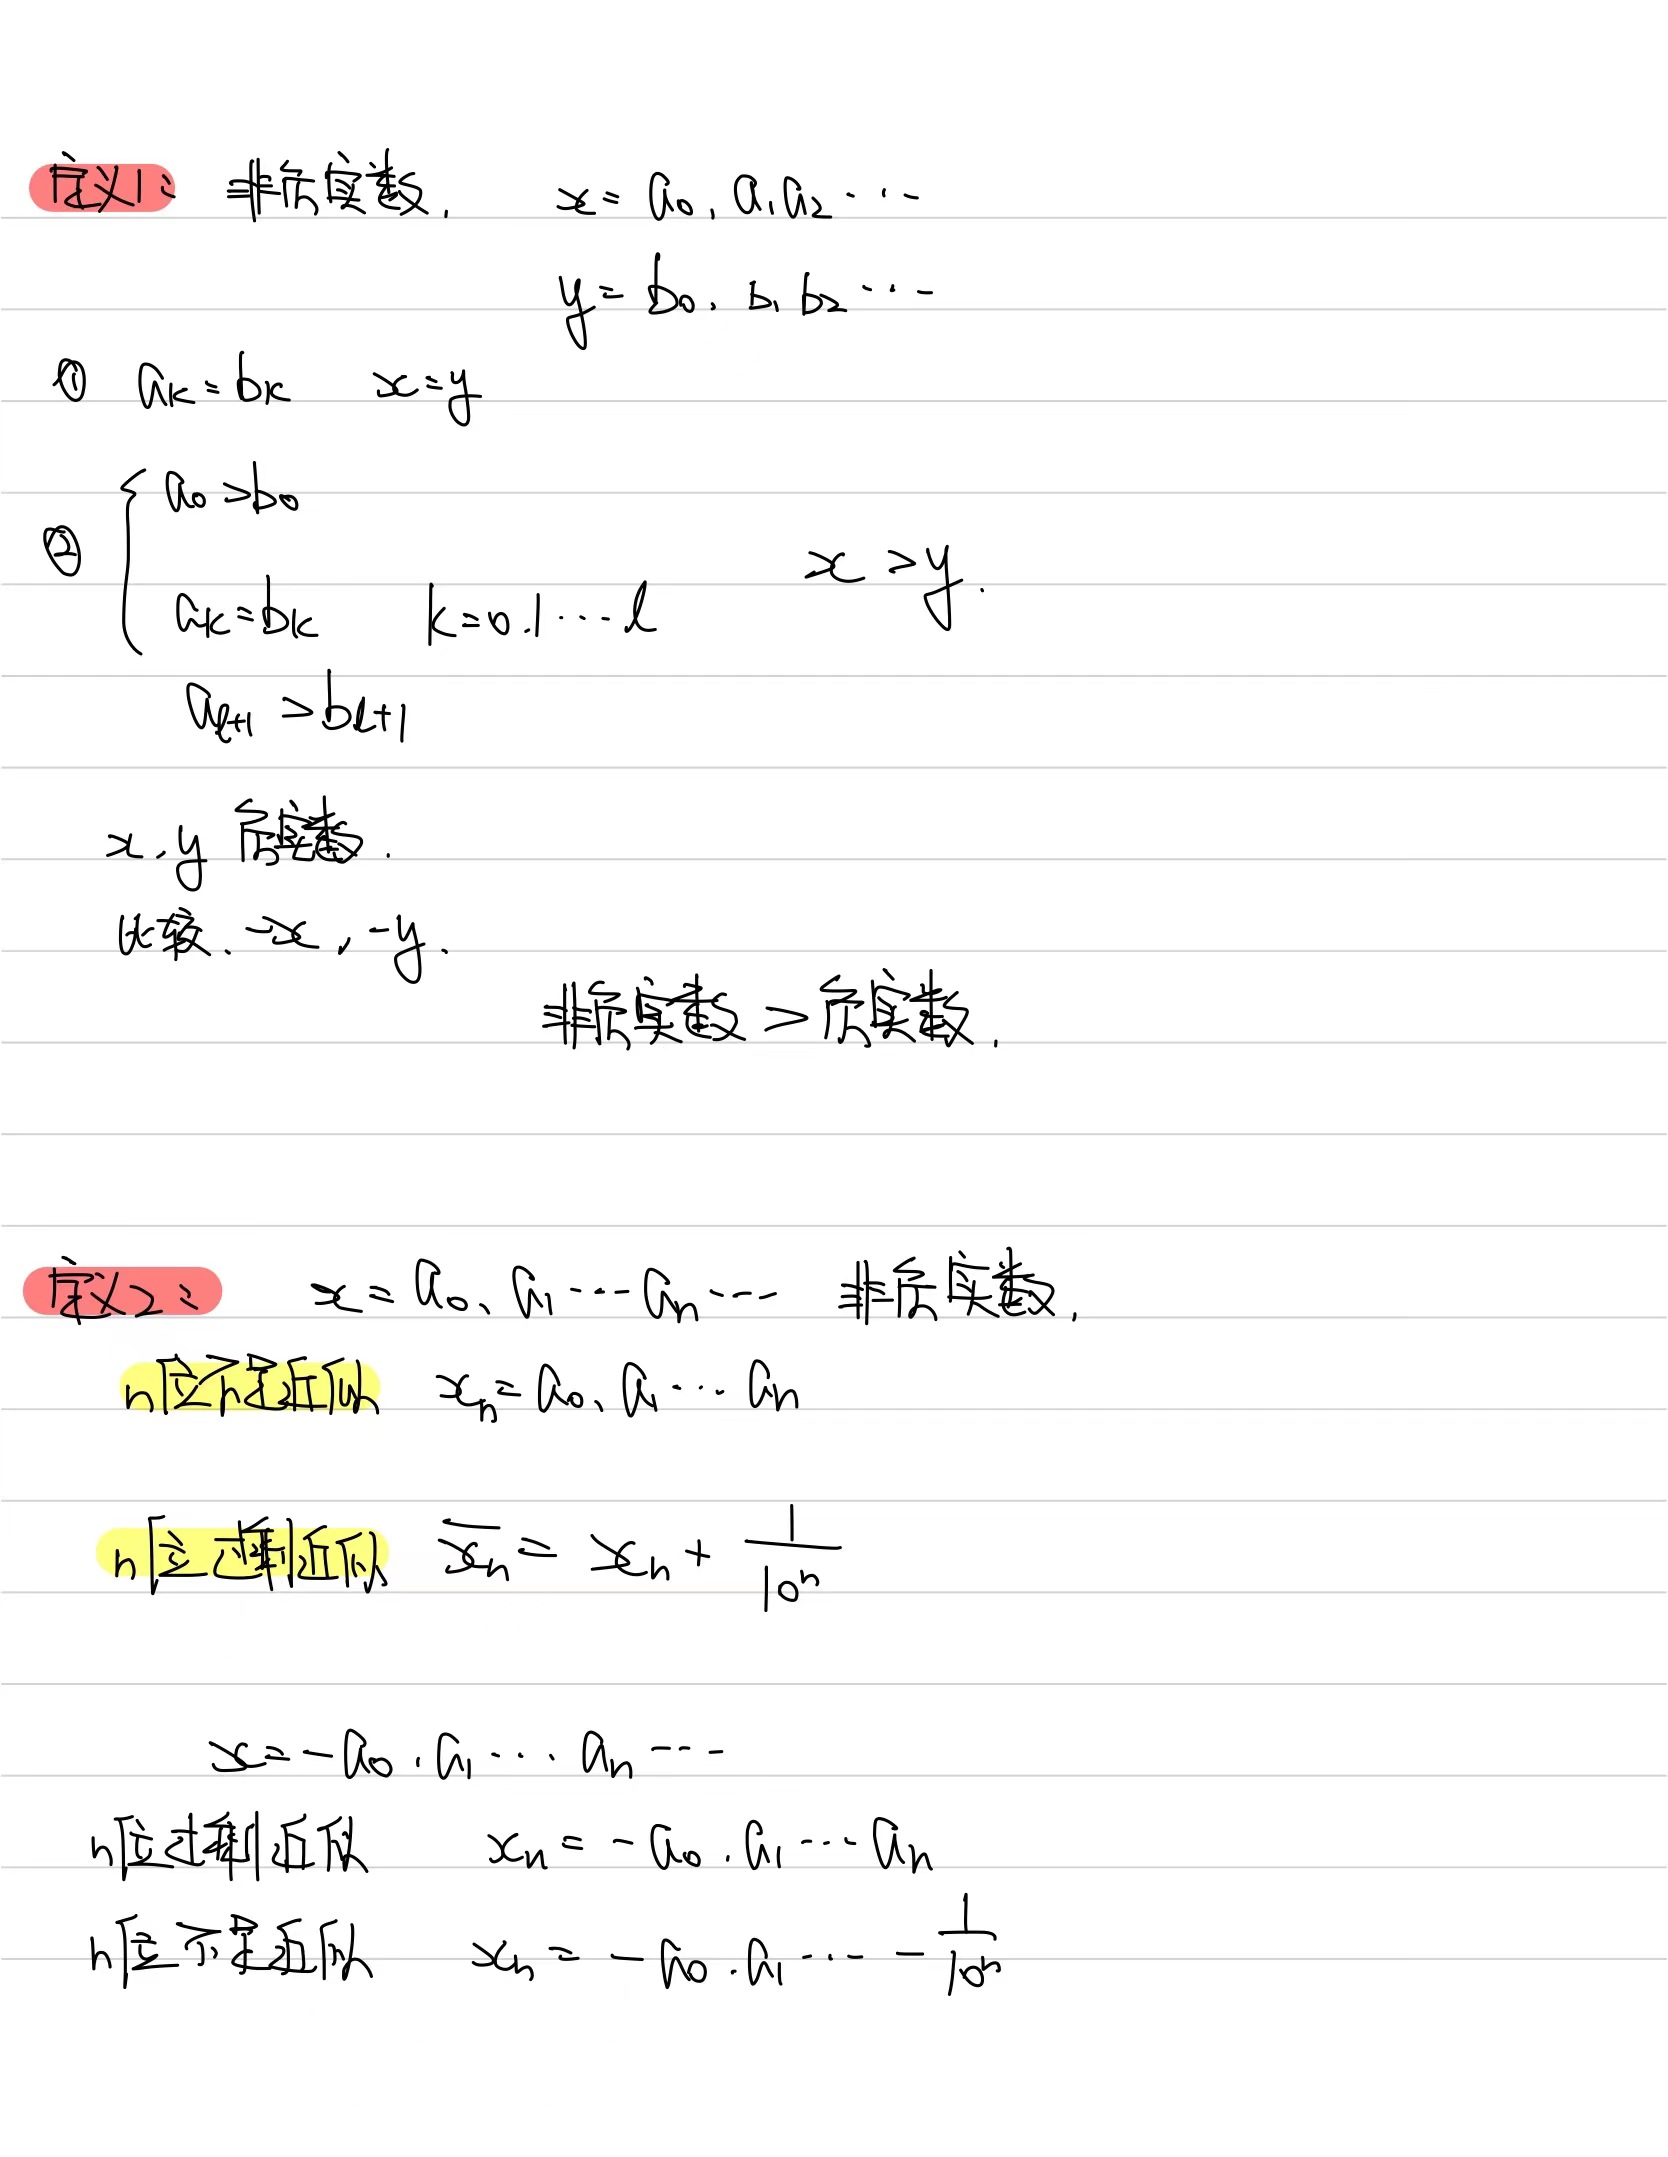 定义1: 非负实数. x = a₀.a₁a₂⋯
y = b₀.b₁b₂⋯
① aₖ = bₖ x = y
② { a₀ > b₀
aₖ = bₖ k = 0.1⋯l x > y.
aₗ₊₁ > bₗ₊₁
x, y 负实数.
比较. -x, -y.
非负实数 > 负实数.
定义2: x = a₀.a₁⋯aₙ⋯ 非负实数.
n位不足近似 xₙ = a₀.a₁⋯aₙ
n位过剩近似 x̅ₙ = xₙ + 1/10ⁿ
x = -a₀.a₁⋯aₙ⋯
n位过剩近似 xₙ = -a₀.a₁⋯aₙ
n位不足近似 xₙ = -a₀.a₁⋯ - 1/10ⁿ